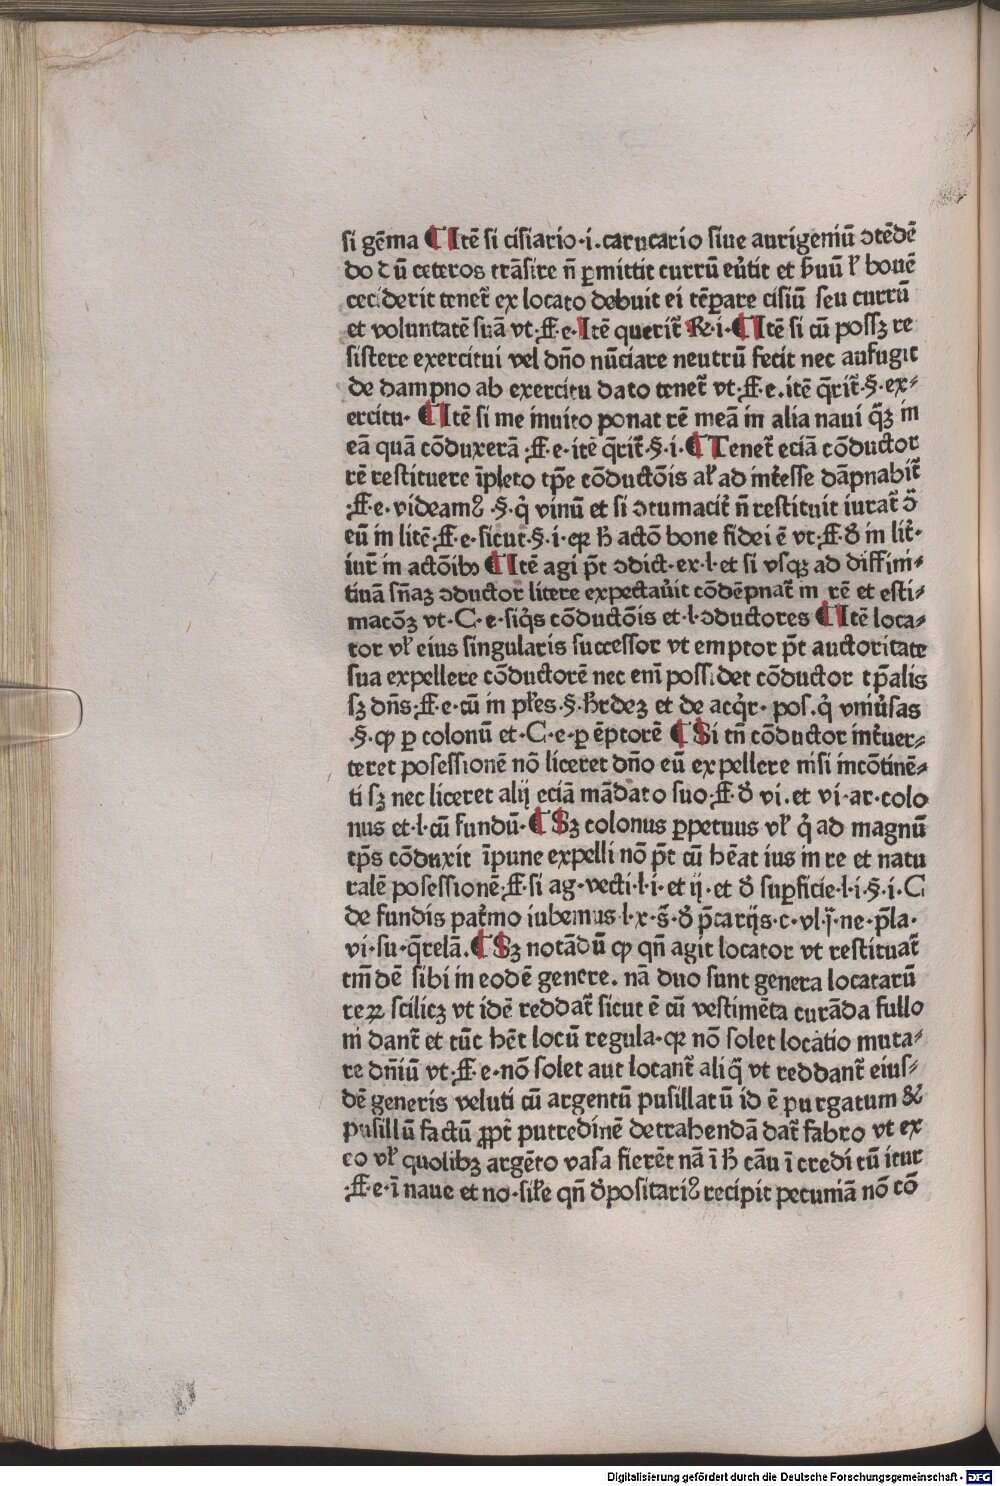 si gēma ¶ Itē si cisiario·i·carucario siue aurigeniū ↄtēdē
do dū ceteros trāsire ñ ꝑmittit currū eůtit et ẜuū ł bouē
ceciderit teneť ex locato debuit ei tēꝑare cisiū seu currū
et voluntatē suā vt·ff·e·Itē querit᷑ R·i·¶ Itē si cū possꝫ re
sistere exercitui vel dño nūciare neutrū fecit nec aufugit
de dampno ab exercitu dato teneť vt·ff·e·itē q̄rit᷑·§·ex⸗
ercitu· ¶ Itē si me inuito ponat rē meā in alia naui q̄ꝫ in
eā quā cōduxerā·ff·e·itē q̄rit᷑·§·i·¶ Teneť eciā cōductor
rē restituere īpleto tꝑe cōductōis ał ad inťesse dāpnabiť
·ff·e·videamꝰ·§·q̇ vinū et si ↄtumaciť ñ restituit iurať ↄ̄
eū in litē·ff·e·sicut·§·i·qꝛ ħ actō bone fidei ē vt·ff·ď in liť·
iuť in actōibꝰ ¶ Itē agi p̄t ↄdict·ex·l·et si vsqꝫ ad diffini⸗
tiuā sñaꝫ ↄductor litere expectaůit cōdēpnať in rē et esti⸗
macōꝫ vt·C·e·siq̇s cōductōis et·l·ↄductores ¶ Itē loca⸗
tor vł eius singularis successor vt emptor p̄t auctoritate
sua expellere cōductorē nec eni possidet cōductor tp̄alis
sꝫ dñs·ff·e·cū in płes·§·ħrdeꝫ et de acq̇r·pos·q̇ vniůsas
·§·ꝙ ꝑ colonū et·C·e·ꝑ ēptorē ¶ Si tñ cōductor inťuer⸗
teret posessionē nō liceret dño eū expellere nisi incōtinē⸗
ti sꝫ nec liceret alij eciā mādato suo·ff·ď vi·et vi·ar·colo
nus et·l·cū fundū·¶ Sꝫ colonus ꝑpetuus vł q̇ ad magnū
tp̄s cōduxit īpune expelli nō p̄t cū hēat ius in re et natu
ralē posessionē·ff·si ag·vecti·l·i·et ij·et ď suꝑficie·l·i·§·i·C
de fundis paťmo iubemus·l·x·s̄·ď p̄carijs·c·vl·ij·ne·p̄la·
vi·su·q̄relā·¶ Sꝫ notādū ꝙ qñ agit locator vt restituať
tm̄dē sibi in eodē genere·nā duo sunt genera locatarū
reꝝ scilicꝫ vt idē reddať sicut ē cū vestimēta curāda fullo
ni danť et tūc hēt locū regula·qꝛ nō solet locatio muta⸗
re dñiū vt·ff·e·nō solet aut locanť aliq̄ vt reddanť eius⸗
dē generis veluti cū argentū pusillatū id ē purgatum &
pusillū factū ꝓpť putredinē detrahendā dať fabro vt ex
eo vł quolibꝫ argēto vasa fierēt nā ī ħ cāu ī creditū itur
·ff·e·ī naue et no·siłe qñ ďpositariꝰ recipit pecuniā nō cō
Digitalisierung gefördert durch die Deutsche Forschungsgemeinschaft · DFG